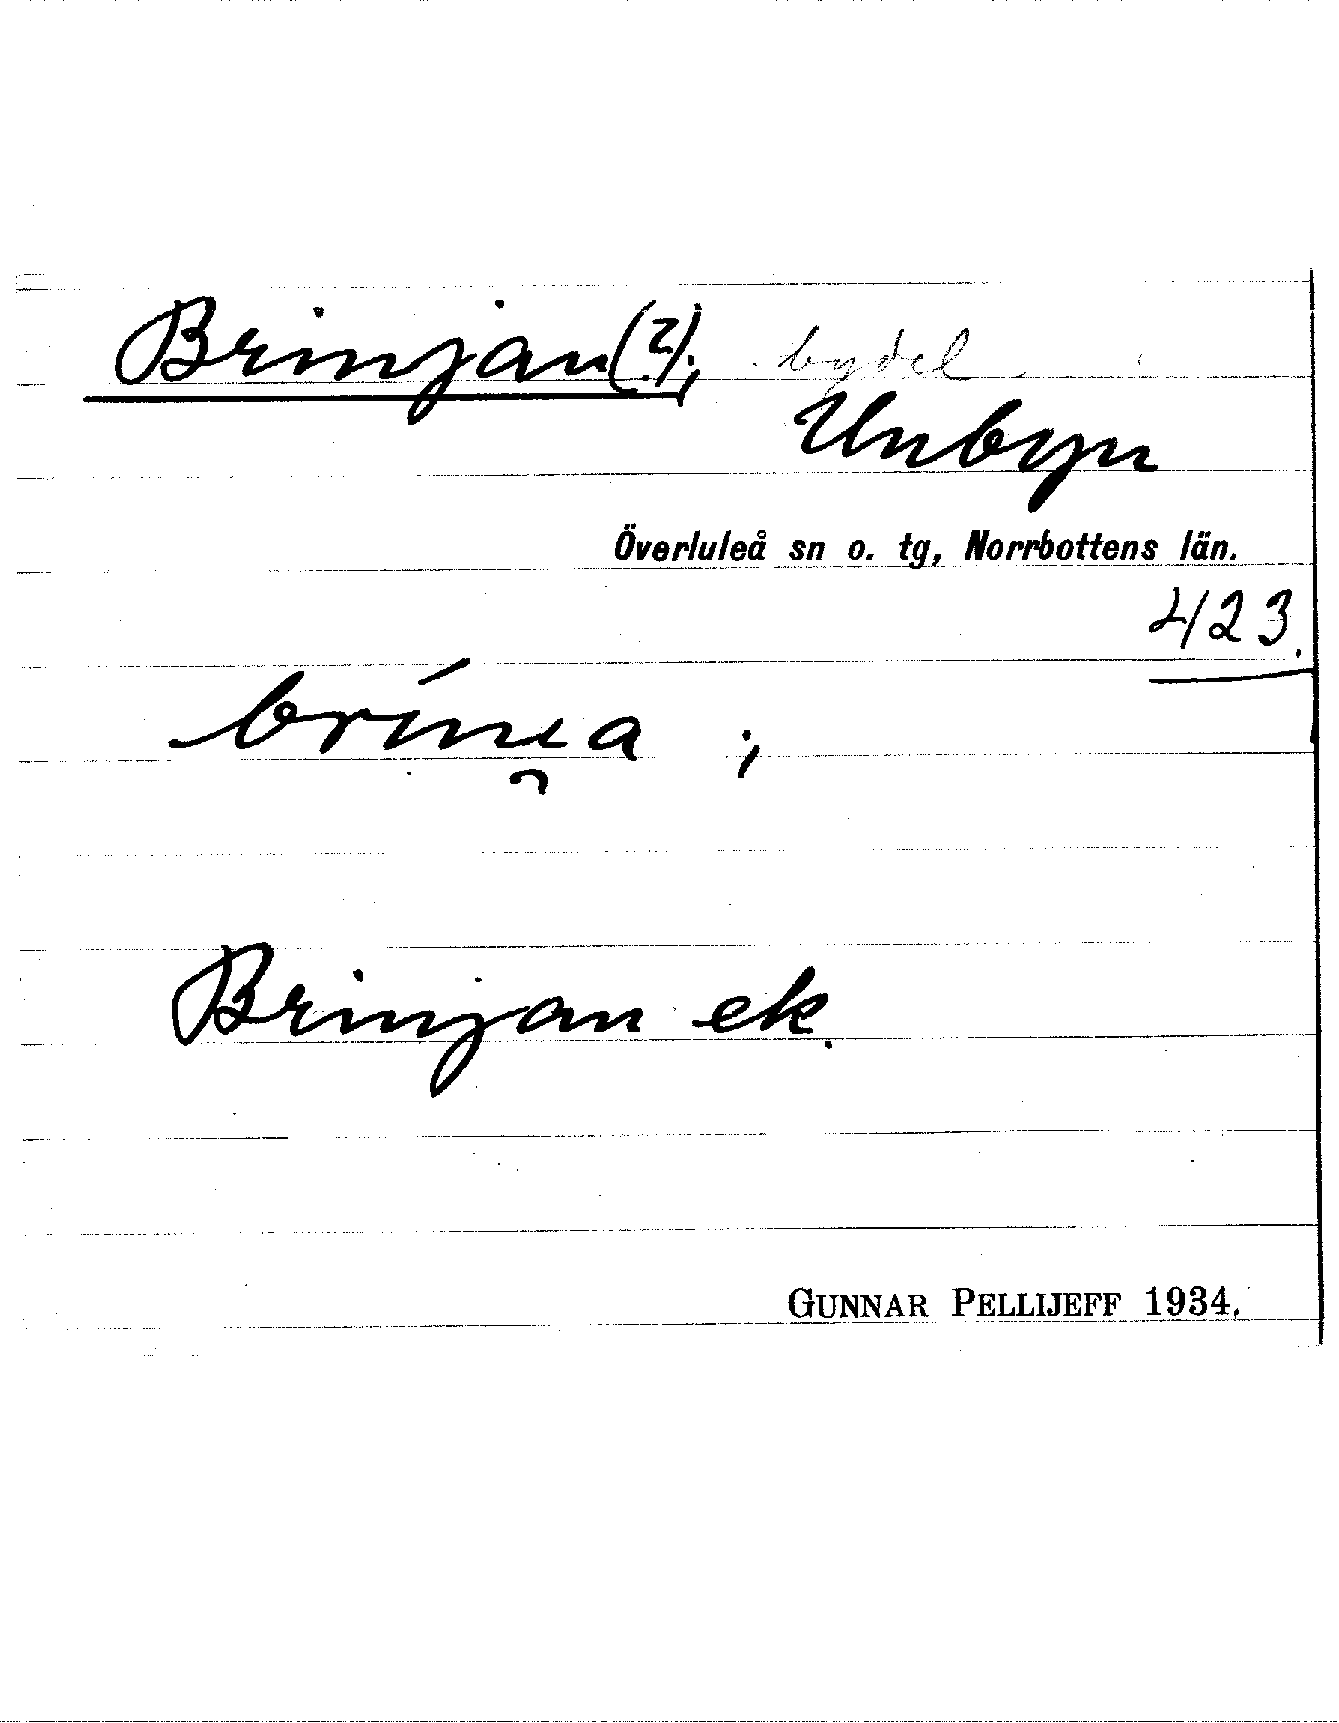 Brinjan(?); bydel
Unbyn
Överluleå sn o. tg, Norrbottens län.
423.
brı́nı̯a ;
Brinjan ek.
GUNNAR PELLIJEFF 1934.